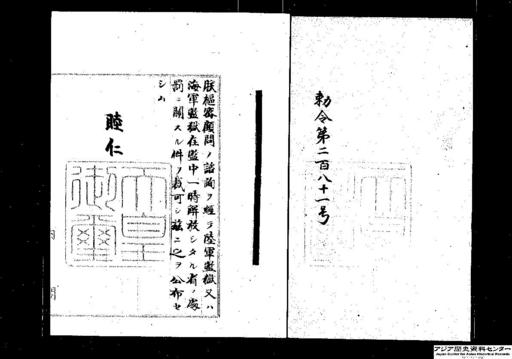 勅令第二百八十一号
朕枢密顧問ノ諮詢ヲ経テ陸軍監獄又ハ
海軍監獄在監中一時解放シタル者ノ処
罰ニ関スル件ヲ裁可シ茲ニ之ヲ公布セ
シム
睦仁
天皇
御璽
内
閣
アジア歴史資料センター
Japan Center for Asian Historical Records